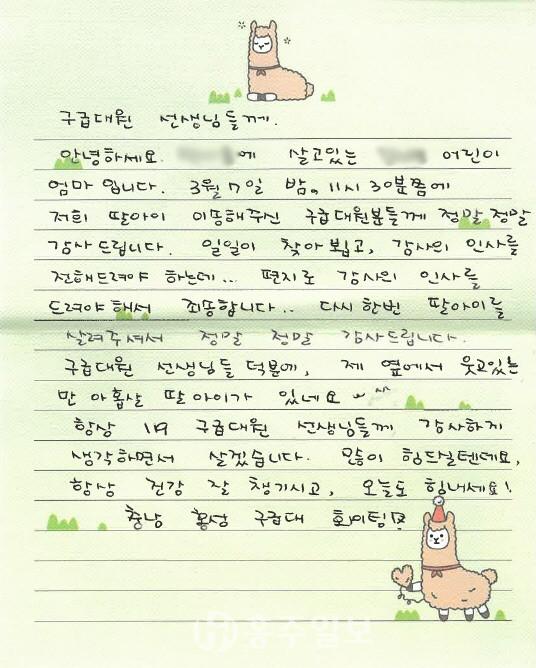 구급대원 선생님들께.
안녕하세요. 에 살고있는 어린이
엄마 입니다. 3월 7일 밤 11시 30분쯤에
저희 딸아이 이송해주신 구급대원분들께 정말 정말
감사 드립니다. 일일이 찾아 뵙고, 감사의 인사를
전해드려야 하는데... 편지로 감사의 인사를
드려야해서 죄송합니다.. 다시 한번 딸아이를
살려주셔서 정말 정말 감사드립니다.
구급대원 선생님들 덕분에, 제 옆에서 웃고있는
만 아홉살 딸 아이가 있네요 ^^
항상 119 구급대원 선생님들께 감사하지
생각하면서 살겠습니다. 많이 힘드실텐데요,
항상 건강 잘 챙기시고, 오늘도 힘내세요!
충남 홍성 구급대 화이팅!!
홍주일보